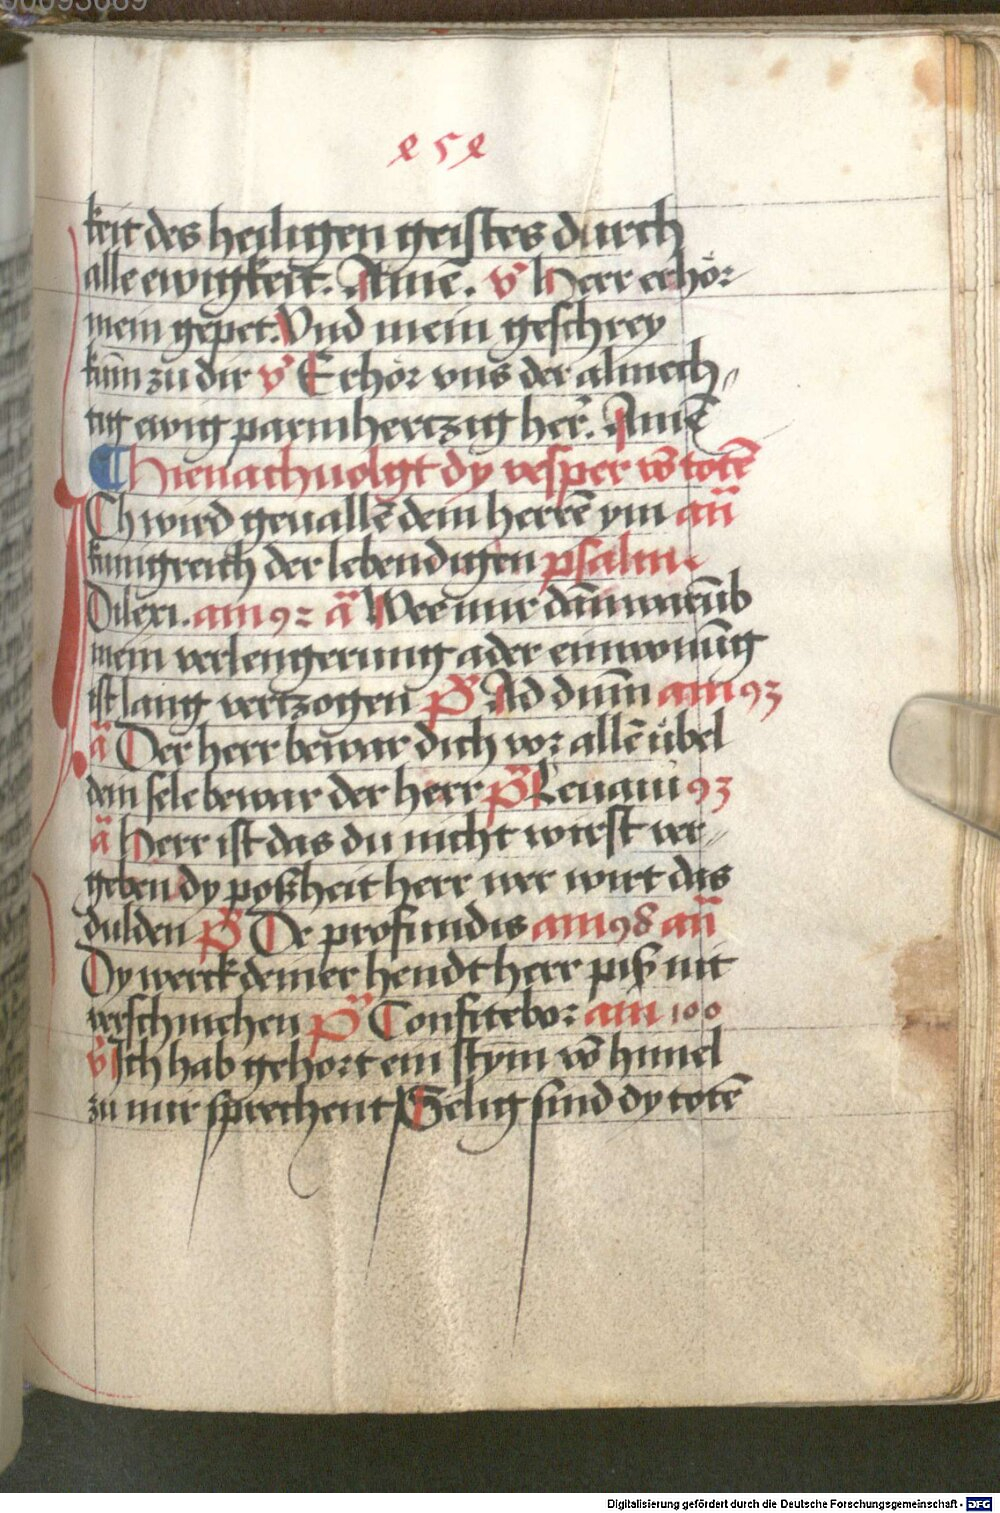 00093689
keit des heiligen geistes durch
alle ewigkeit. Amē. v̄ Herr erhör
mein gepet. Vnd mein geschrey
kum̄ zu dir v̄ Erhör vns der almech„
tig ewig parmhertzig her̄. Amē
Hienach uolgt dy vesper vō totē
Ich wird geuallē dem herrē ym an̄
kunigreich der lebendigen psalm
Dilexi. am 92 ā Wee mir dān warūb
mein verlengerung ader einwonūg
ist lang vertzogen p̄s Ad dnm̄ am 93
ā Der herr bewar dich vor allē übel
dein sele bewar der herr p̄s Leuaui 93
ā Herr ist das du nicht wirst ver„
geben dy poßheit herr wer wirt das
dulden p̄s De profundis am 98 an̄
Dy werck deiner hendt herr piß nit
verschmehen p̄s Confitebor am 100
v̄ Ich hab gehort ein stym vō himel
zu mir sprechent Selig sind dy totē
Digitalisierung gefördert durch die Deutsche Forschungsgemeinschaft - DFG